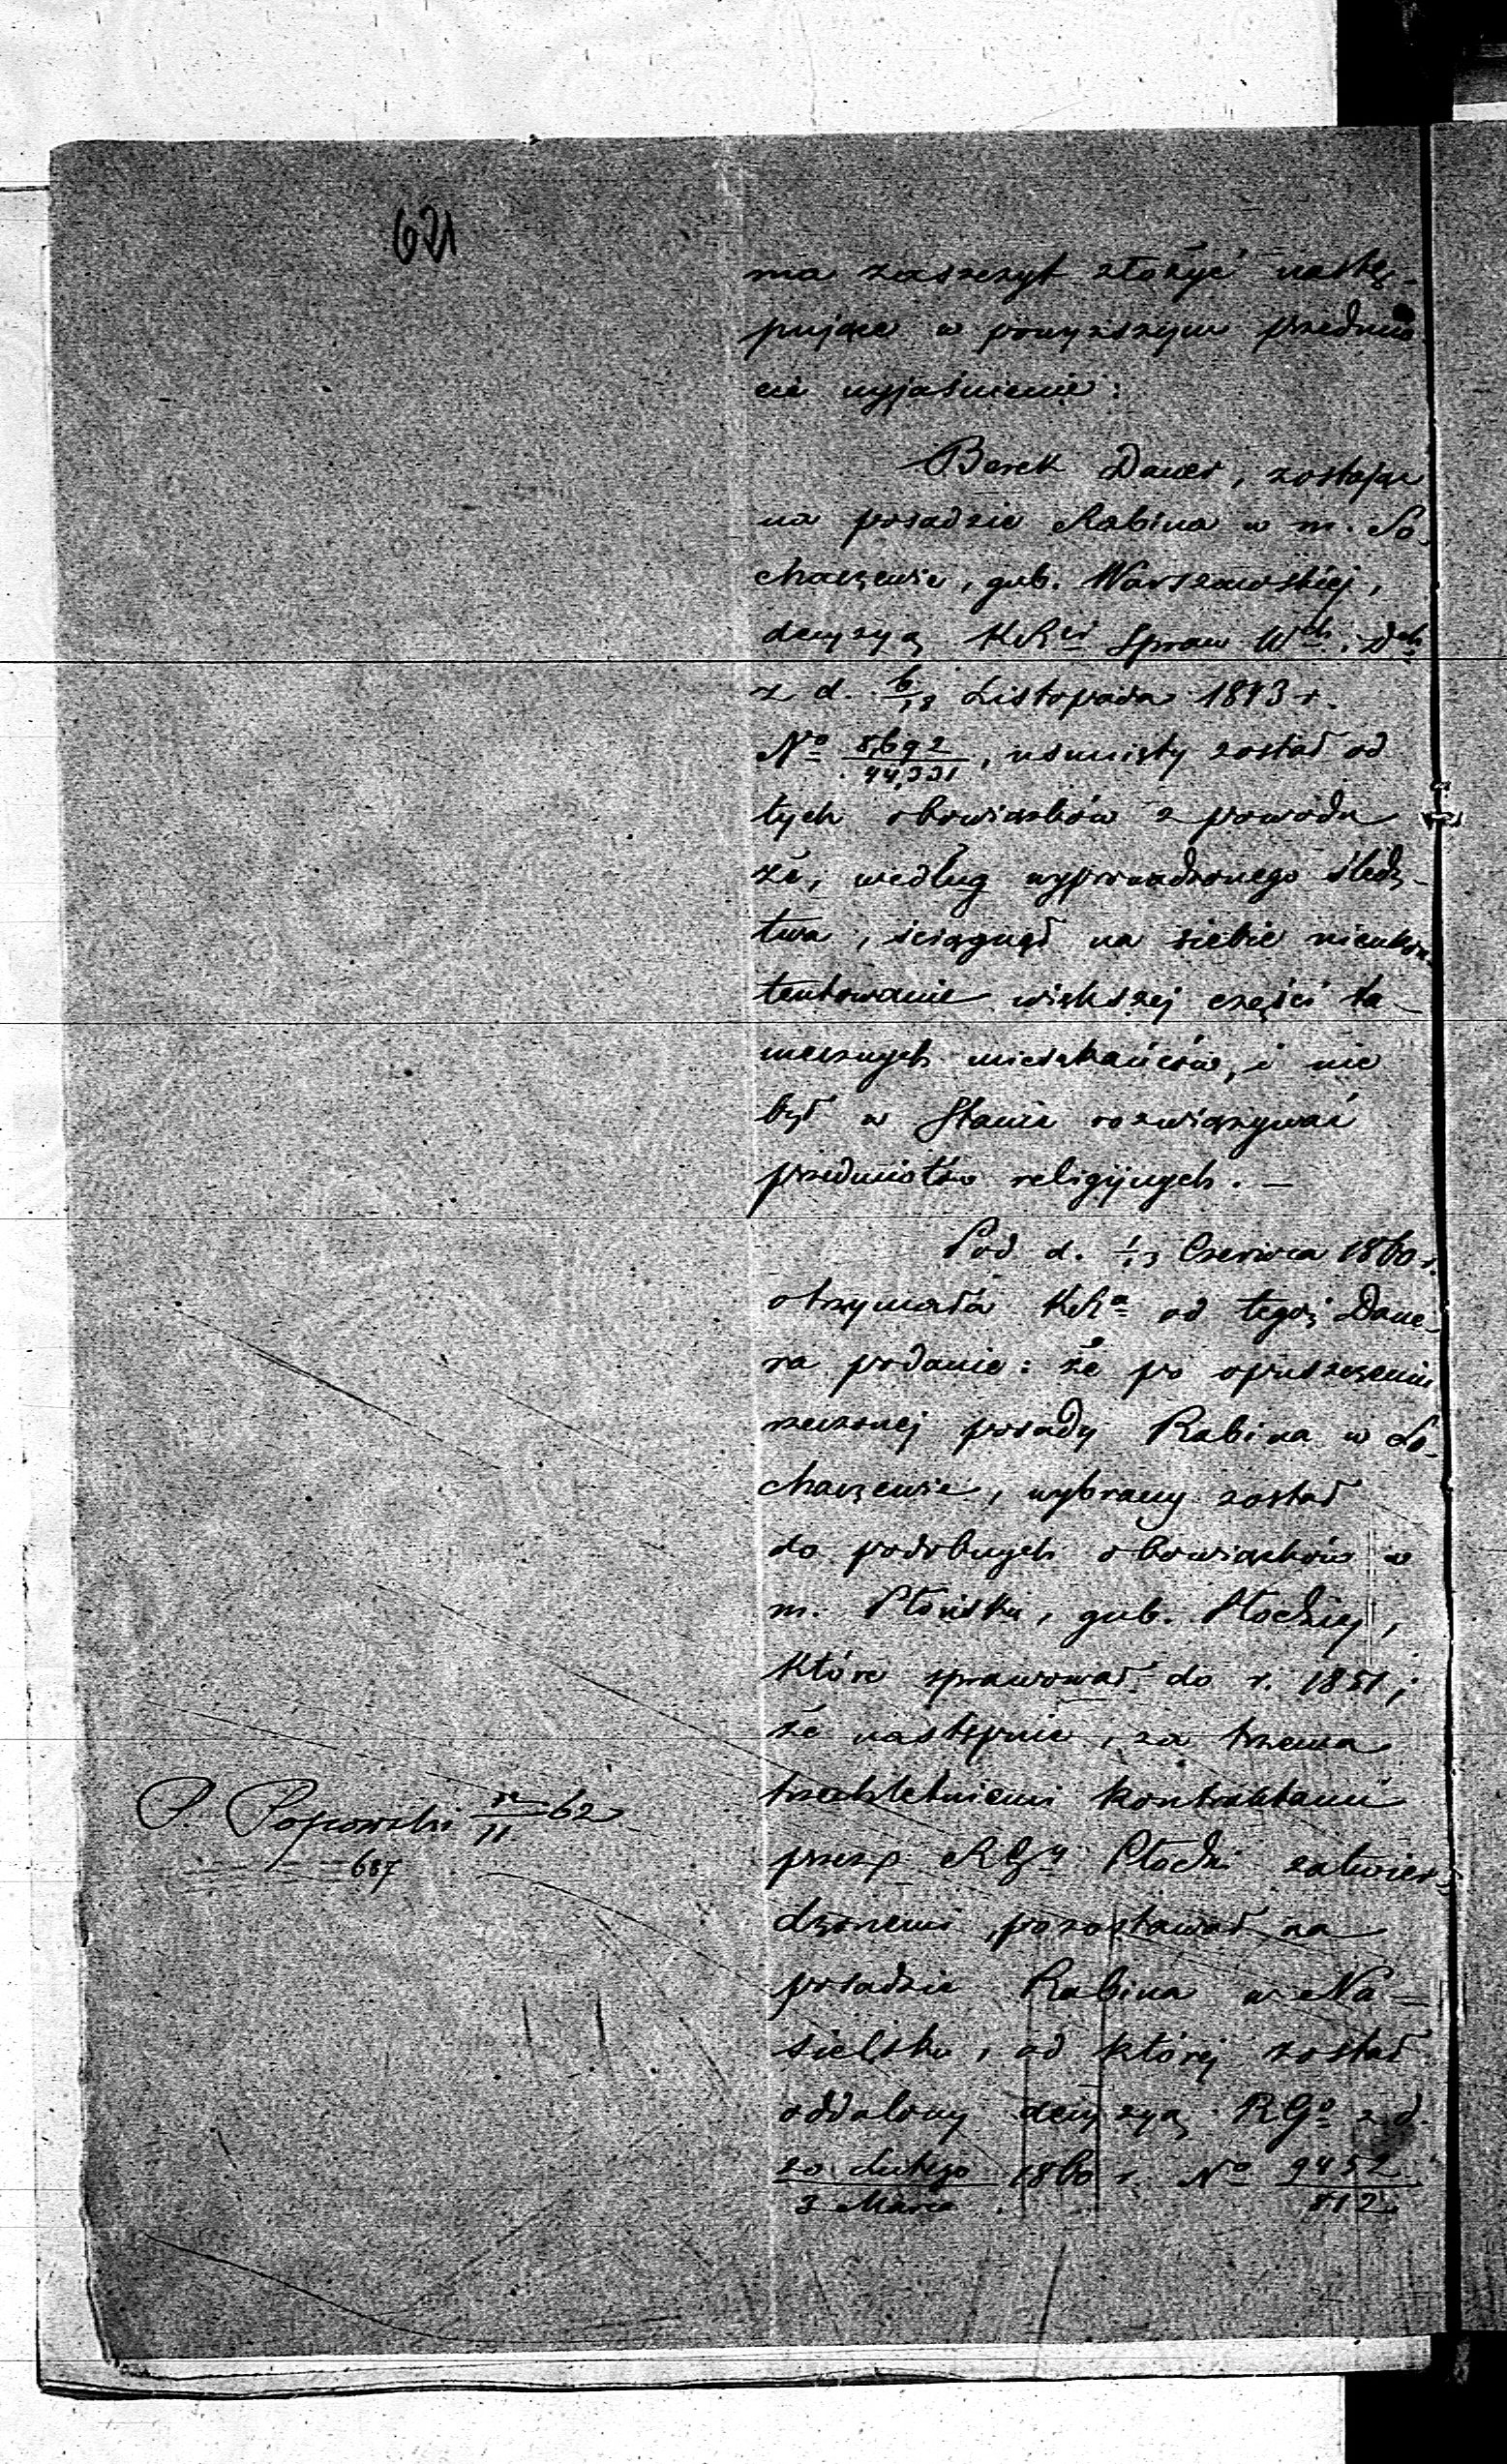 621
ma zaszczyt złożyć nastę-
pujące w powyższym przedmio-
cie wyjaśnienie:
Berek Dauer, zostając
na posadzie Rabina w m. So-
chaczewie, gub. Warszawskiej,
decyzyą KRei Spraw Wch. Dch
z d. 6/18 Listopada 1843 r.
No 8,692/44,331, usunięty został od
tych obowiązków z powodu
że, według wyprowadzonego śledz-
twa, ściągnął na siebie nieukon-
tentowanie większej części ta-
mecznych mieszkańców, i nie
był w stanie rozwiązywać
przedmiotów religijnych. —
Pod d. 1/13 Czerwca 1860 r.
otrzymała KRa od tegoż Daue-
ra podanie: że po opuszczeniu
rzeczonej posady Rabina w So-
chaczewie, wybrany został
do podobnych obowiązków w
m. Płońsku, gub. Płockiej,
które sprawował do r. 1851;
że następnie, za trzema
trzechletniemi kontraktami
przez RGy Płocki zatwier-
dzonemi, pozostawał na
posadzie Rabina w Na-
sielsku, od której został
oddalony decyzyą RGo z d.
20 Lutego/3 Marca 1860 r. No 9452/812
P. Popowski /11 62
687